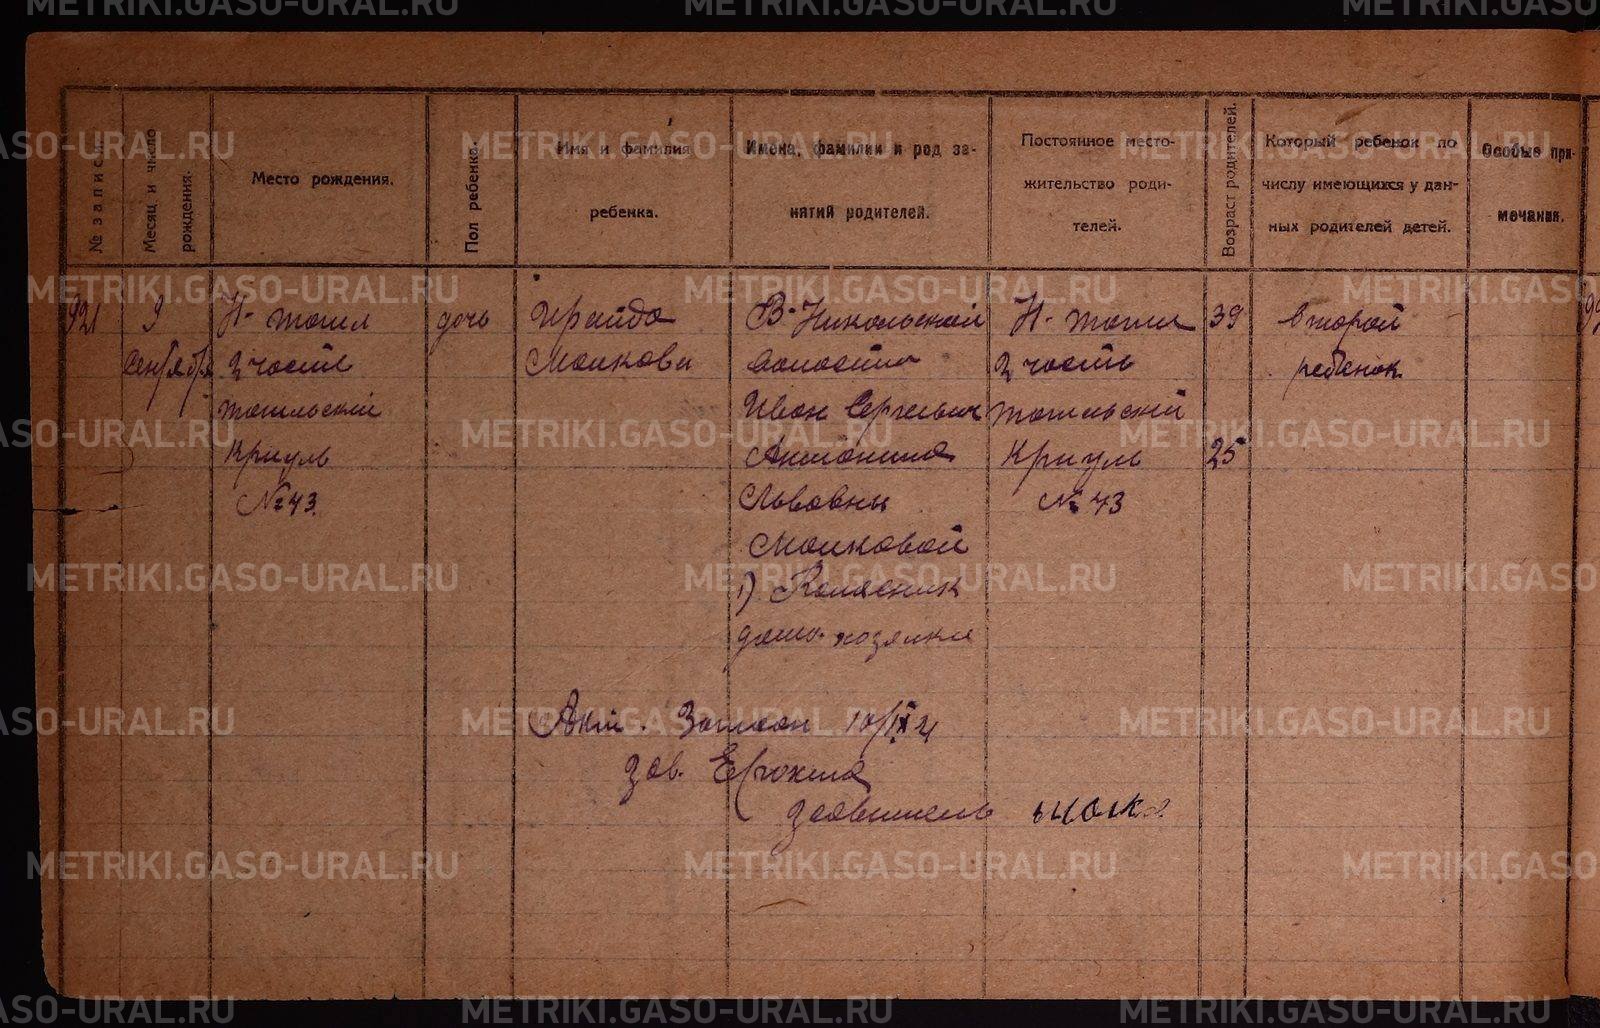 № записи.
Месяц и число
рождения.
Место рождения.
Пол ребенка.
Имя и фамилия
ребенка.
Имена, фамилии и род за-
нятий родителей.
Постоянное место-
жительство роди-
телей.
Возраст родителей.
Который ребенок по
числу имеющихся у дан-
ных родителей детей.
Особые при-
мечания.
921
9
сентября
Н-Тагил
3 часть
Тагильский
Криуль
№ 43.
дочь
Ираида
В-Никольской
волости
Иван Сергеевич
Антонина
Львовны
1)
домо-хозяйка
Н-Тагил
3 часть
Тагильский
Криуль
№ 43
39
25
второй
ребенок
10/IX 21
зав.
заявитель
METRIKI.GASO-URAL.RU